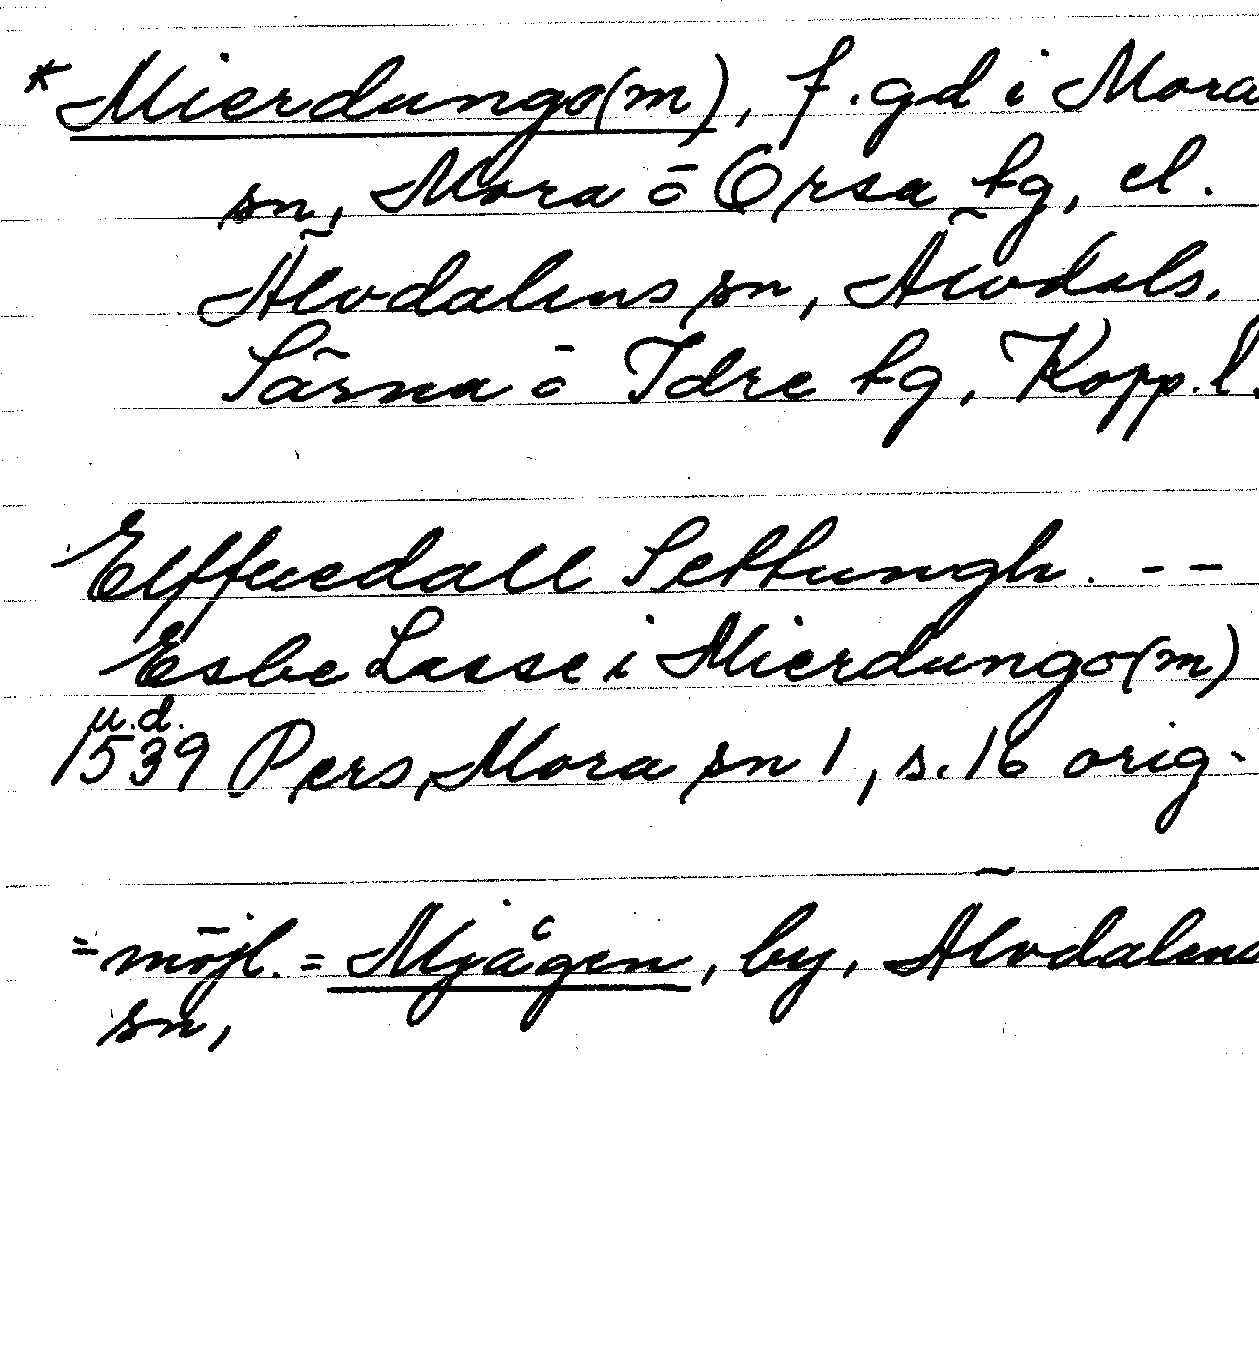 *Mierdungo(m), f.gd i Mora
sn, Mora o Orsa tg, el.
Älvdalens sn, Älvdals,
Särna o Idre tg, Kopp.l.
Elffuedall Settungh. --
Esbe Lasse i Mierdungo(m)
u.d.
1539 Pers, Mora sn 1, s.16 orig.
= möjl. = Mjågen, by, Älvdalens
sn,